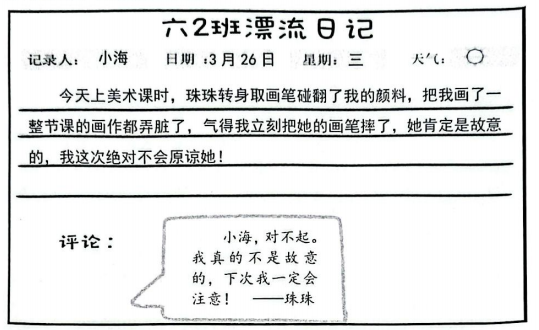 六2班漂流日记
记录人： 小海 日期：3月26日 星期：三 天气：
今天上美术课时，珠珠转身取画笔碰翻了我的颜料，把我画了一
整节课的画作都弄脏了，气得我立刻把她的画笔摔了，她肯定是故意
的，我这次绝对不会原谅她！
评论：
小海，对不起。
我真的不是故意
的，下次我一定会
注意！ ——珠珠